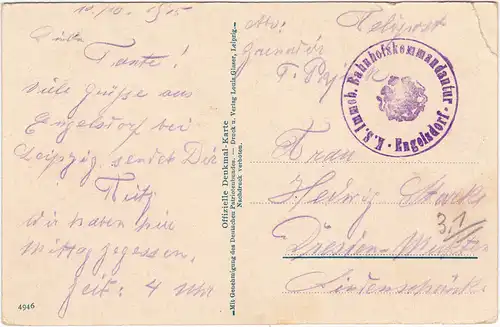 10/10. 1915
Liebe
Tante!
Viele Grüße aus
Engelsdorf bei
Leipzig sendet Dir
Fritz
Wir haben hie
Mittag gegessen,
Zeit: 4 Uhr
4946
Offizielle Denkmal-Karte
Mit Genehmigung des Deutschen Patriotenbundes. — Druck u. Verlag Louis Glaser, Leipzig.
Nachdruck verboten.
Abs:
Feldpost
K. S. Immob. Bahnhofskommandantur
Engelsdorf
Frau
Hedwig
3,1
Dresden